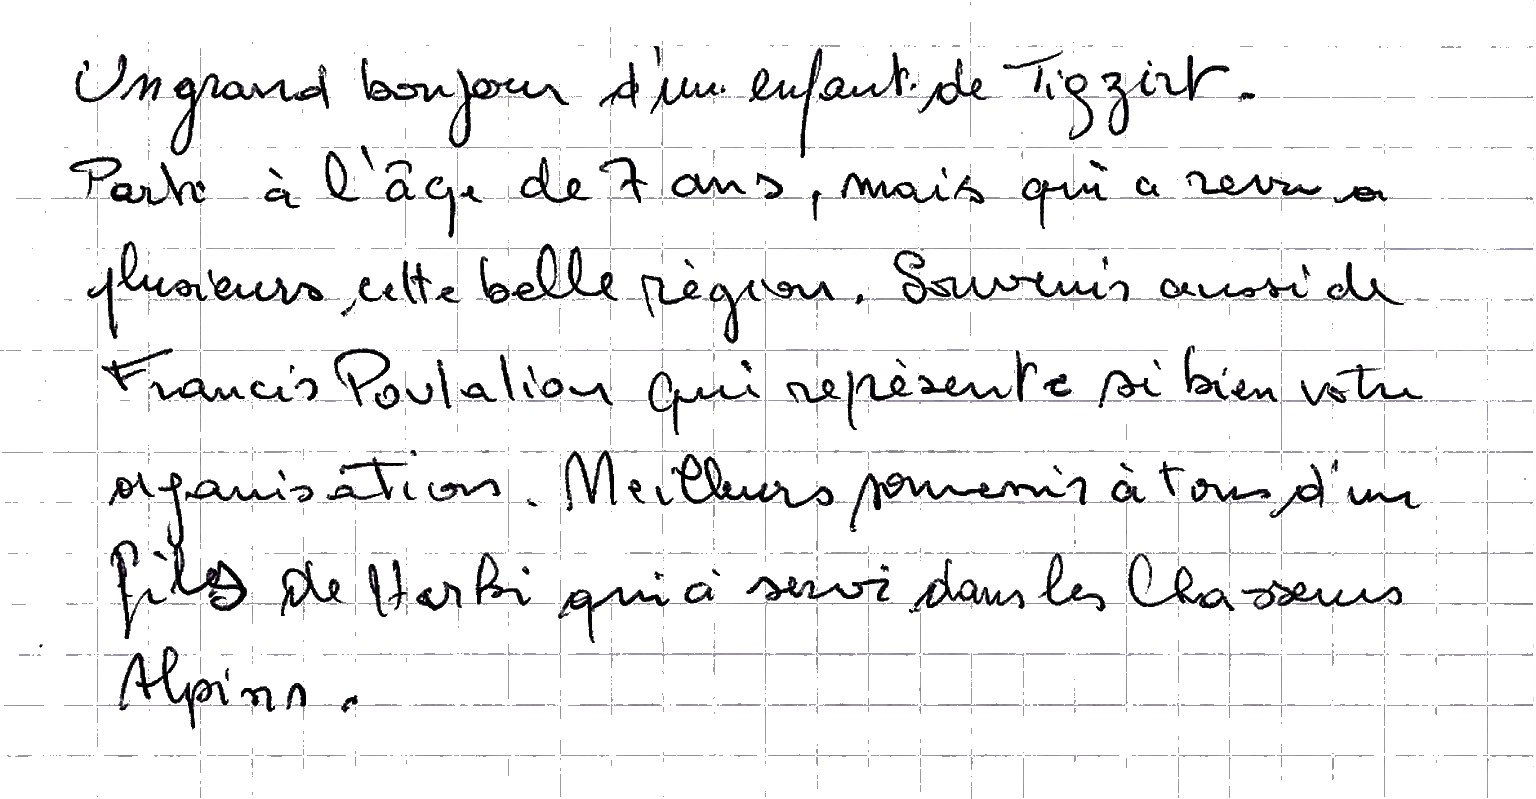 Un grand bonjour d'un enfant de Tigzirt.
Parti à l'âge de 7 ans, mais qui a revu a
plusieurs cette belle région. Souvenir aussi de
Francis Poulalion qui représente si bien votre
organisation. Meilleurs souvenir à tous d'un
fils de Harki qui à servi dans les Chasseurs
Alpins.